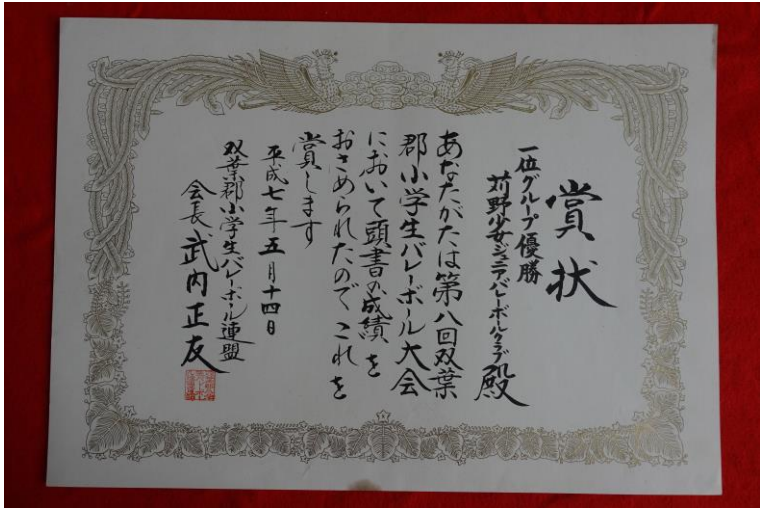 賞状
一位グループ優勝
苅野少女ジュニアバレーボールクラブ殿
あなたがたは第八回双葉
郡小学生バレーボール大会
において頭書の成績を
おさめられたのでこれを
賞します
平成七年五月十四日
双葉郡小学生バレーボール連盟
会長武内正友